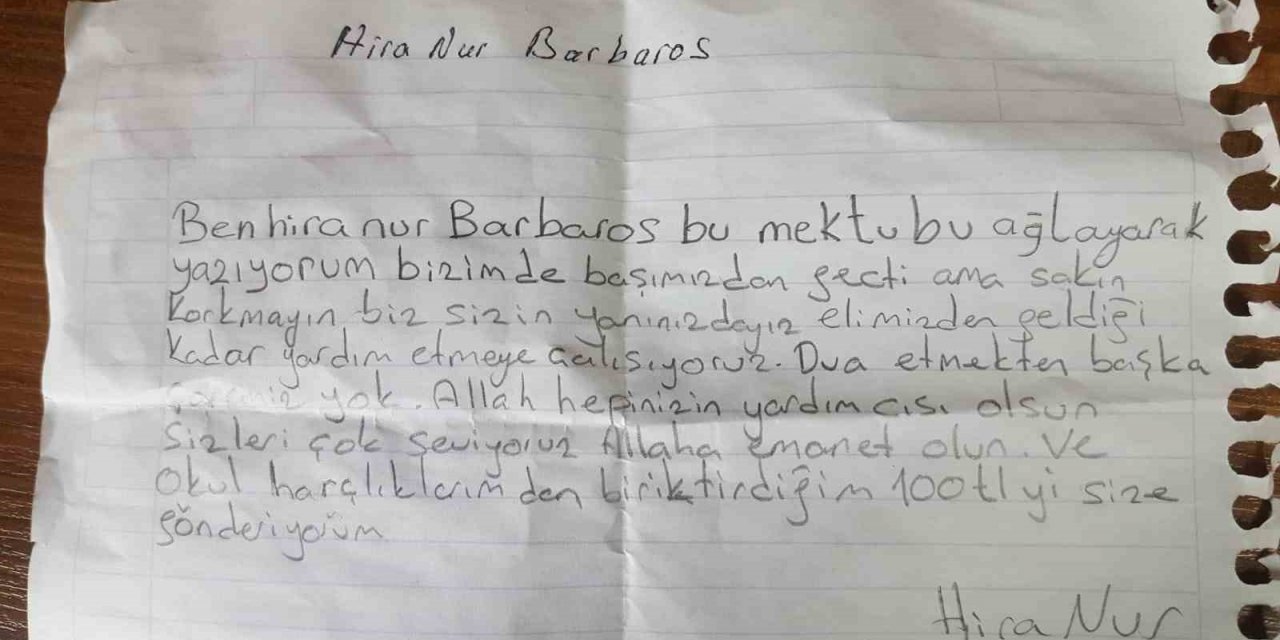 Hira Nur Barbaros
Ben hira nur Barbaros bu mektubu ağlayarak
yazıyorum bizimde başımızdan geçti ama sakın
Korkmayın biz sizin yanınızdayız elimizden geldiği
kadar yardım etmeye çalışıyoruz. Dua etmekten başka
yok. Allah hepinizin yardımcısı olsun
Sizleri çok seviyoruz Allaha emanet olun. Ve
Okul harçlıklarımdan biriktirdiğim 100tlyi size
gönderiyorum
Hira Nur